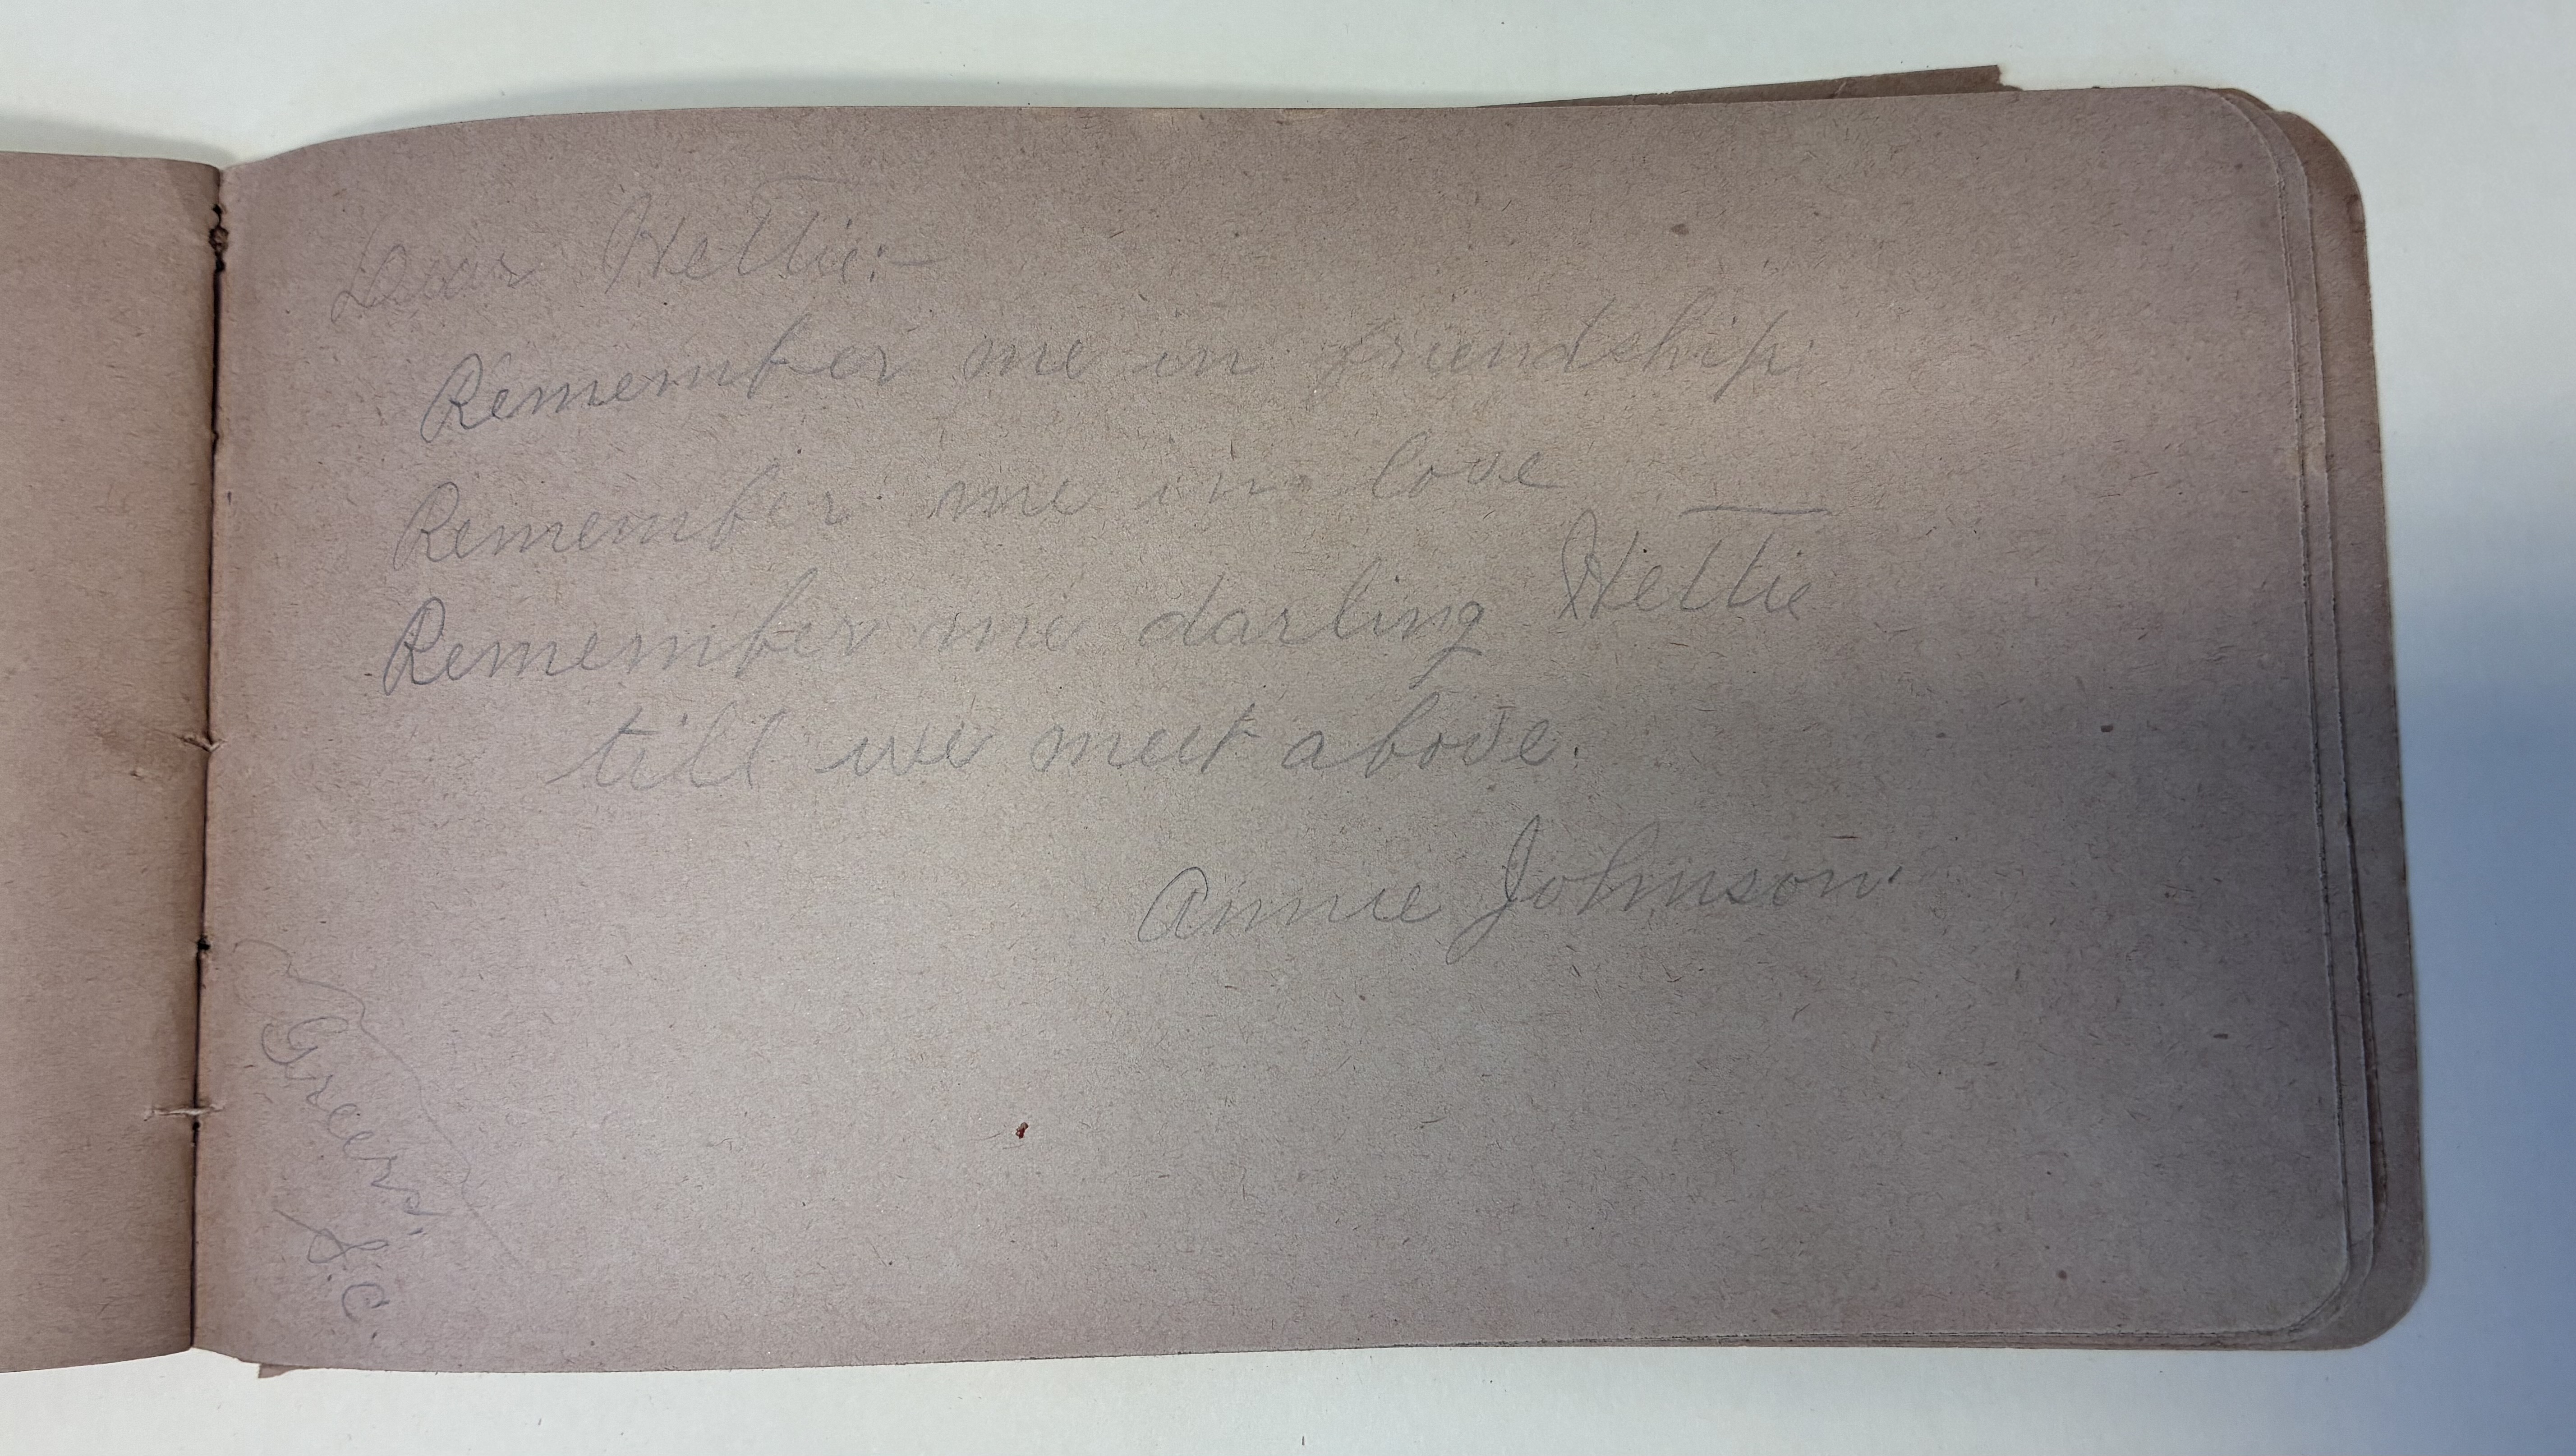 Dear Hettie:-
Remember me in friendship
Remember me in love
Remember me darling Hettie
till we meet above.
Annie Johnson.
Greers,
S.C.